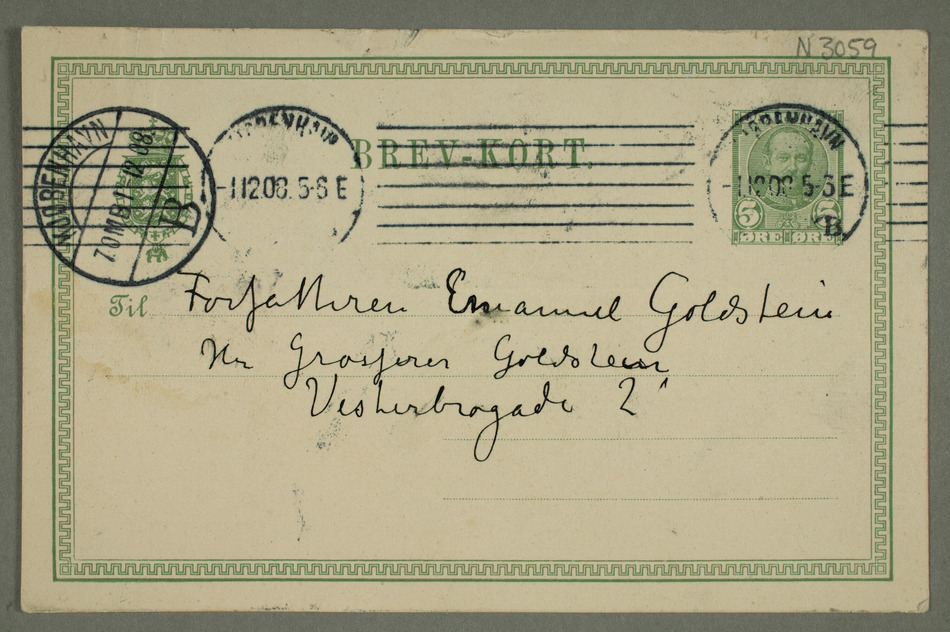 N 3059
BREV-KORT.
KJØBENHAVN
1.12.08. 7.OMB.
B
KJØBENHAVN
1.12.08. 5-6 E
KJØBENHAVN
1.12.08. 5-6 E
B.
5 5
ØRE ØRE
Til Forfatteren Emanuel Goldstein
Hr Grosserer Goldstein
Vesterbrogade 2